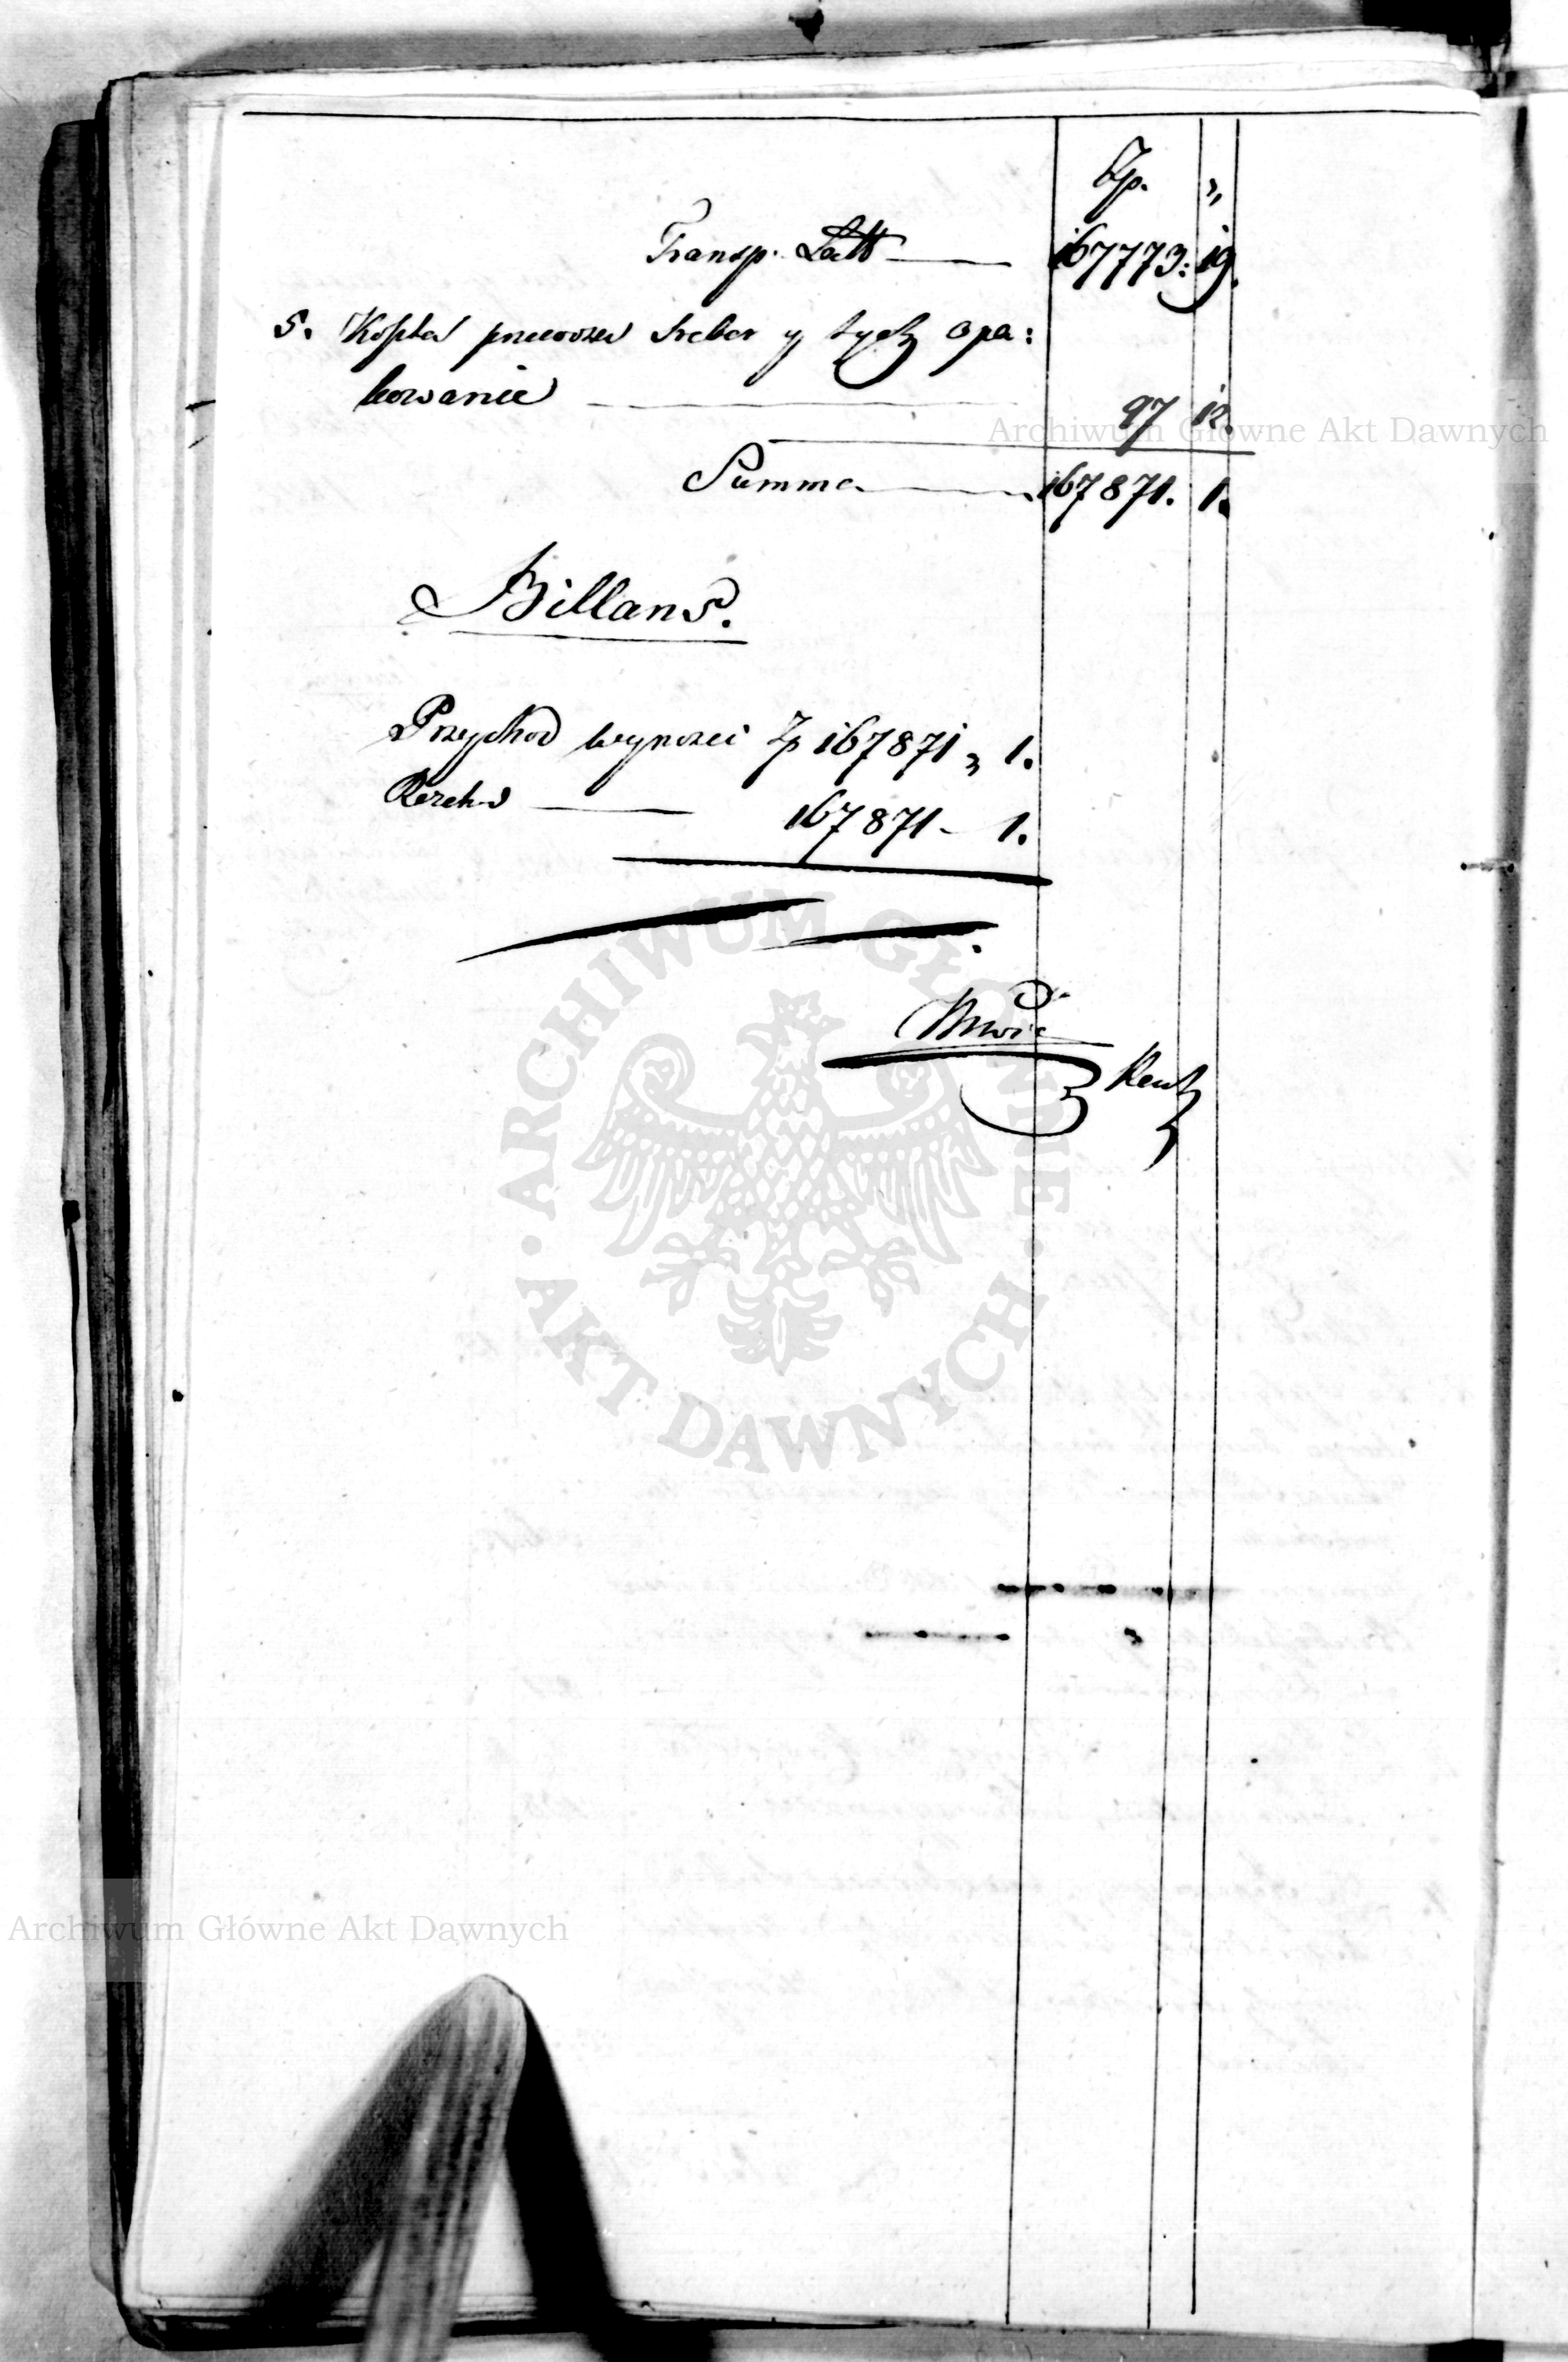 Zp. "
Transp. Latt 167773: 19.
5. Koszta przewozu sreber y tych opa:
kowanie 97 12.
Summa 167871. 1.
Billans.
Przychod wynosci Zp 167871 „ 1.
Rozchod 167871 - 1.
Archiwum Główne Akt Dawnych
ARCHIWUM GŁÓWNE · AKT DAWNYCH ·
Archiwum Główne Akt Dawnych